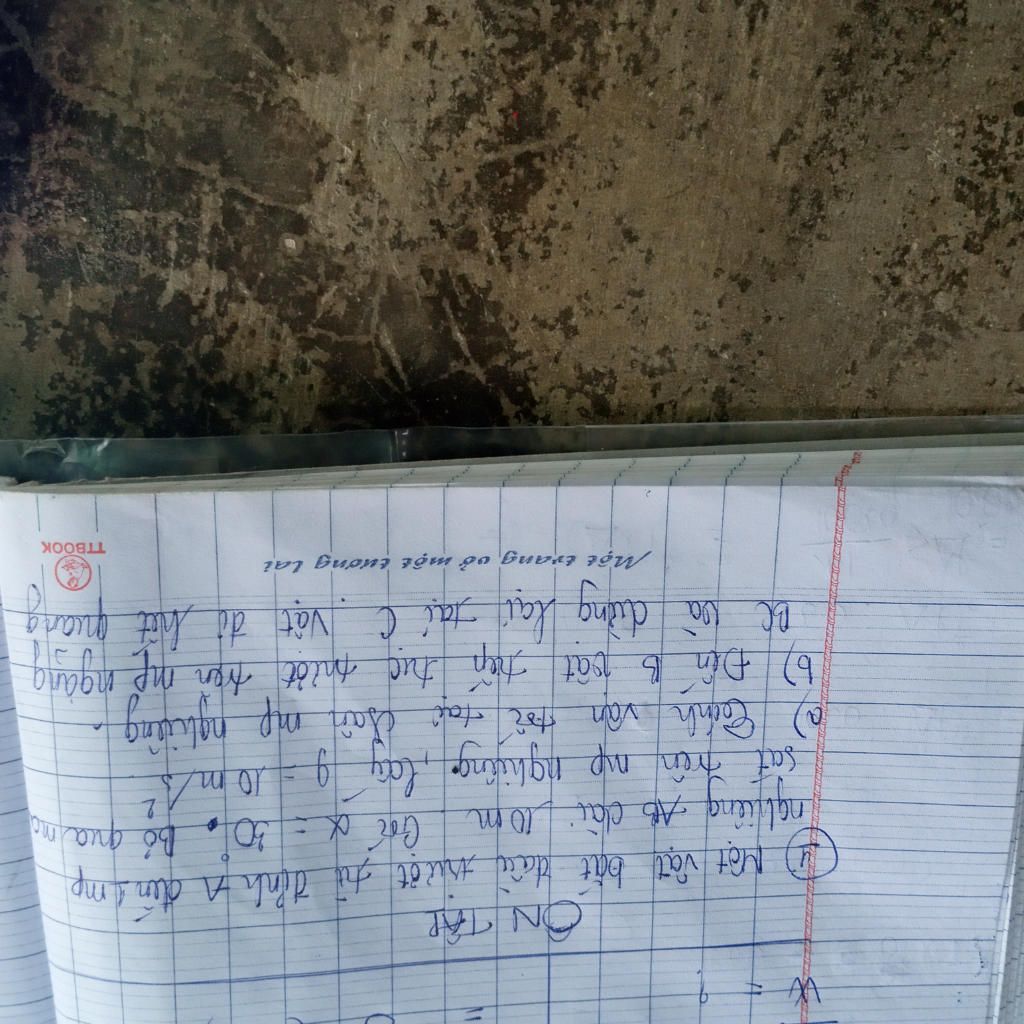 α = ?
ÔN TẬP
① Một vật bắt đầu trượt từ đỉnh A đến 1 mp
nghiêng AB dài 10 m Góc α = 30°. Bỏ qua ma
sát trên mp nghiêng, lấy g = 10 m/s²
a) Tính vận tốc tại chân mp nghiêng.
b) Đến B vật tiếp tục trượt trên mp ngang
BC và dừng lại tại C. Vật đi hết quang
Một trang vở một tương lai
TTBOOK